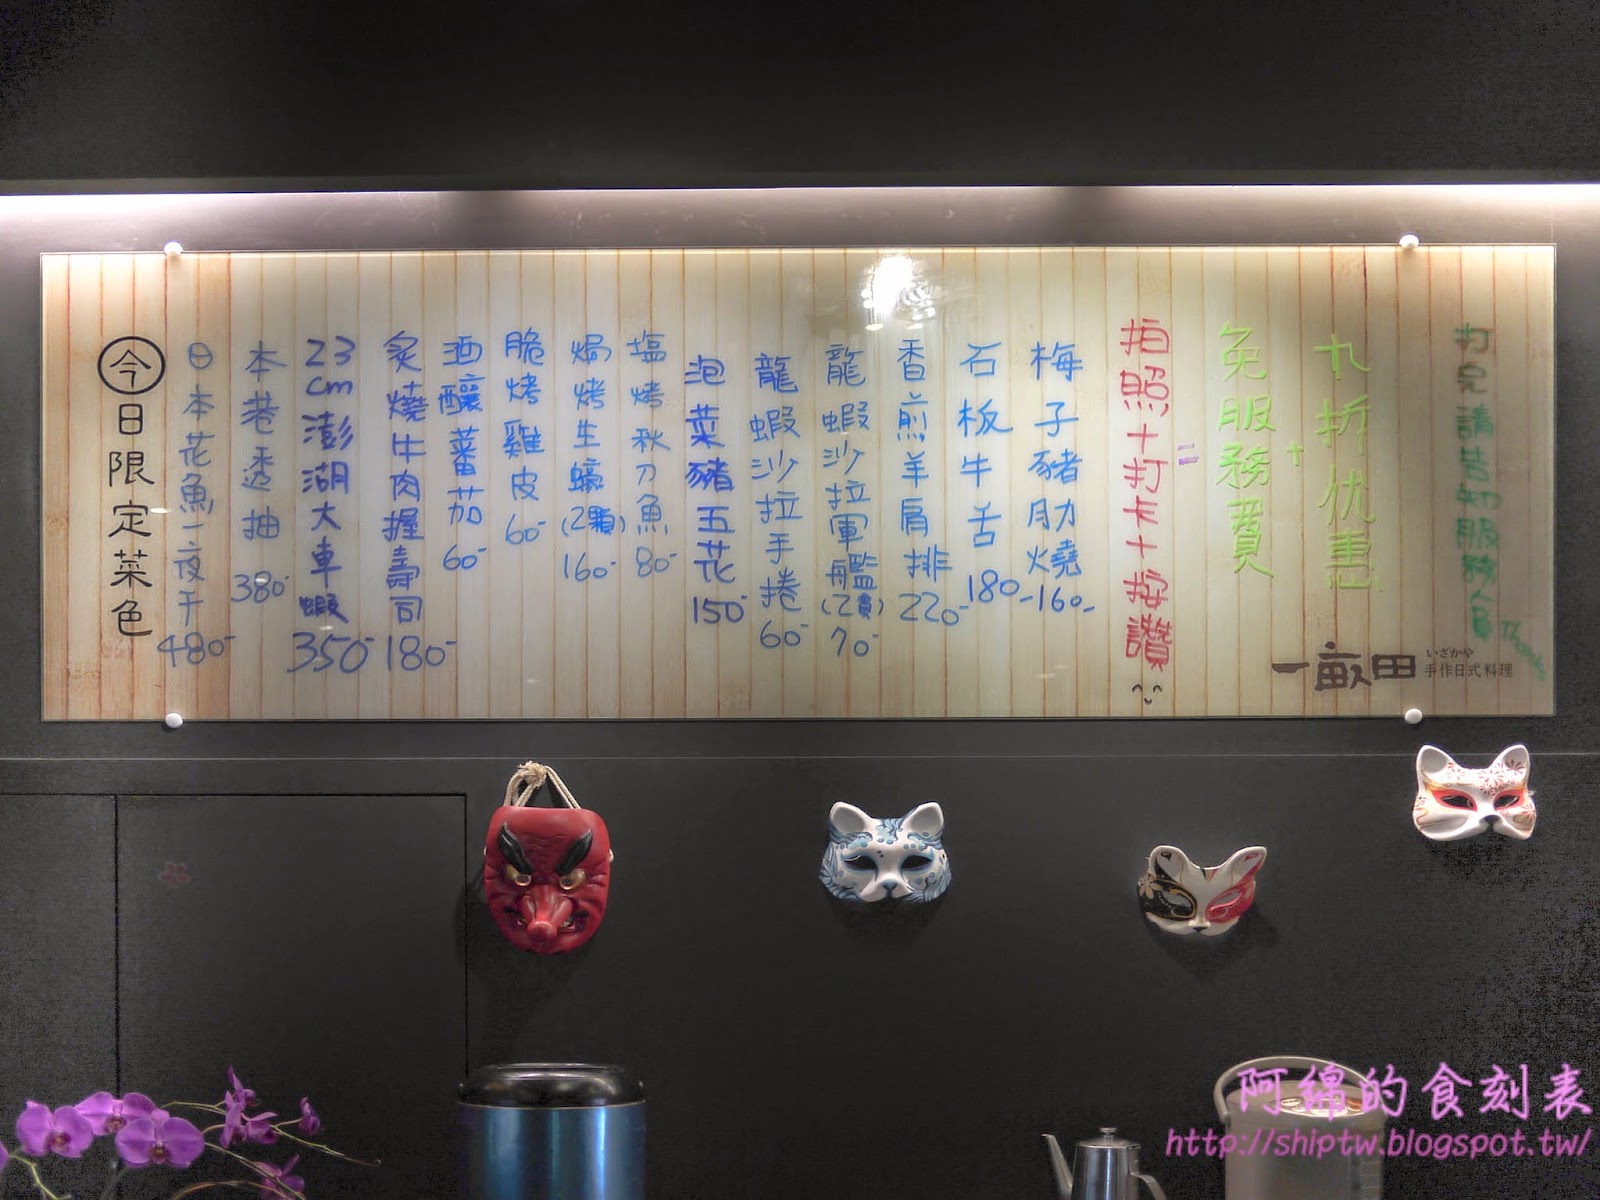 今日限定菜色
日本花魚一夜干 480-
本巷透抽 380-
23cm澎湖大車蝦 350-
炙燒牛肉握壽司 180-
酒釀蕃茄 60-
脆烤雞皮 60-
焗烤生蠔(2顆) 160-
塩烤秋刀魚 80-
泡菜豬五花 150-
龍蝦沙拉手捲 60-
龍蝦沙拉軍艦(2貫) 70-
香煎羊肩排 220-
石板牛舌 180-
梅子豬肋燒 160-
拍照+打卡+按讚
=
免服務費
+
九折优惠
打完請告知服務人員 Thanks
一畝田
いざかや
手作日式料理
阿綿的食刻表
http://shiptw.blogspot.tw/